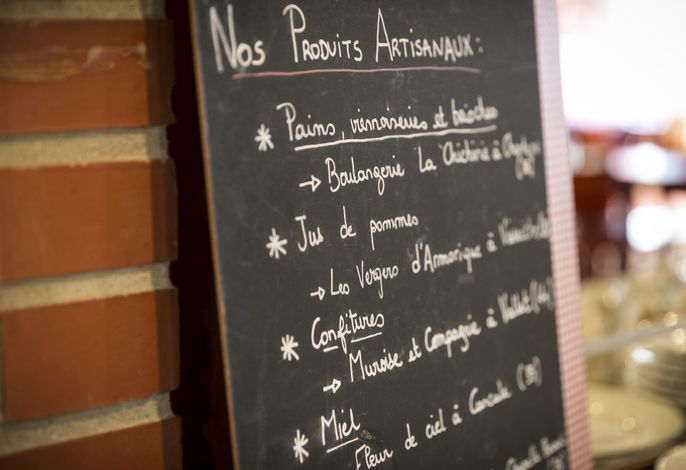 Nos Produits Artisanaux:
* Pains, viennoiseries et brioches
→ Boulangerie La Chichinie à
* Jus de pommes
→ Les Vergers d'Armorique à
* Confitures
→ Muroise et Compagnie à Vallet (44)
* Miel
Fleur de ciel à